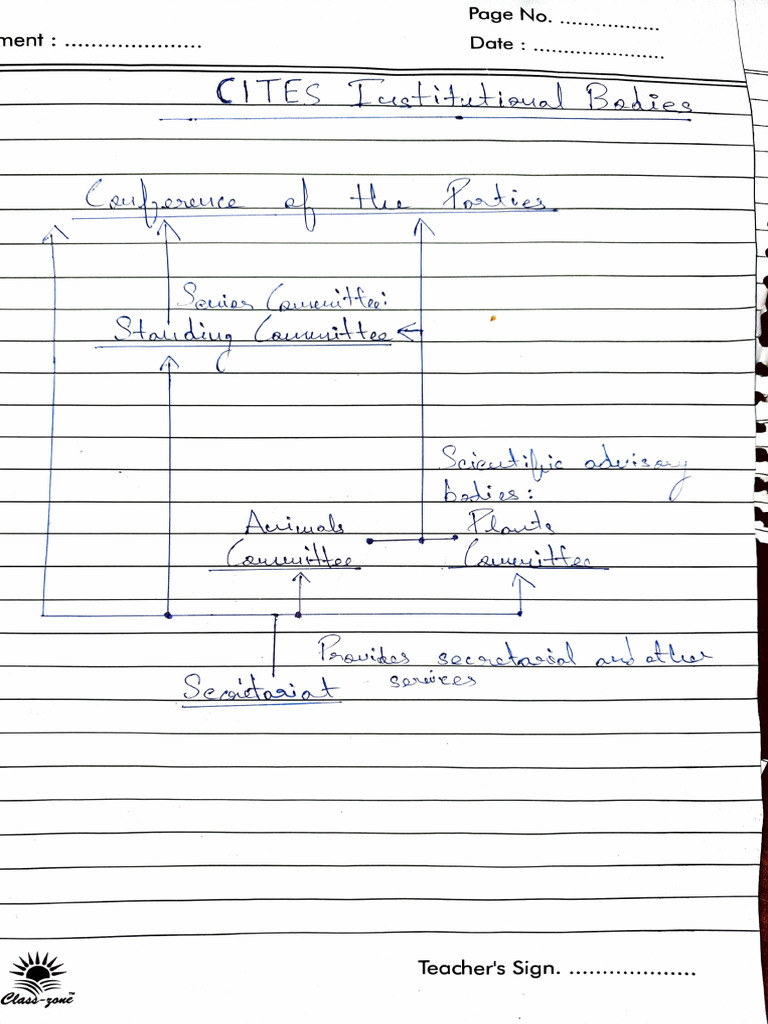 Page No. ..............
ment : .....................
Date : ....................
CITES Institutional Bodies
Conference of the Parties
Senior Committee:
Standing Committee
Scientific advisory
bodies:
Animals Plants
Committee Committee
Provides secretarial and other
Secretariat services
Teacher's Sign. ...................
Class-zone™